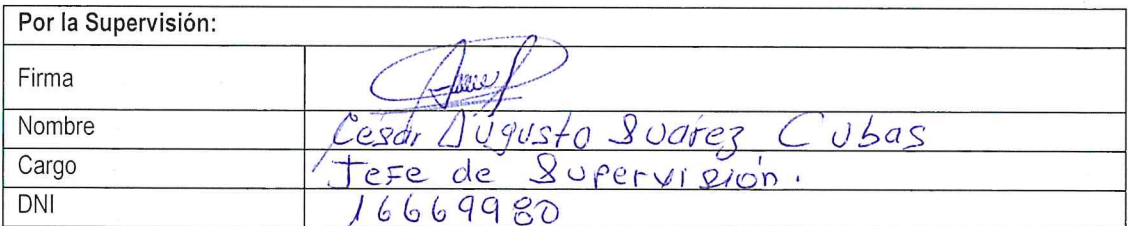 Por la Supervisión:
Firma
Nombre César Augusto Suarez Cubas
Cargo Jefe de Supervisión.
DNI 16669980